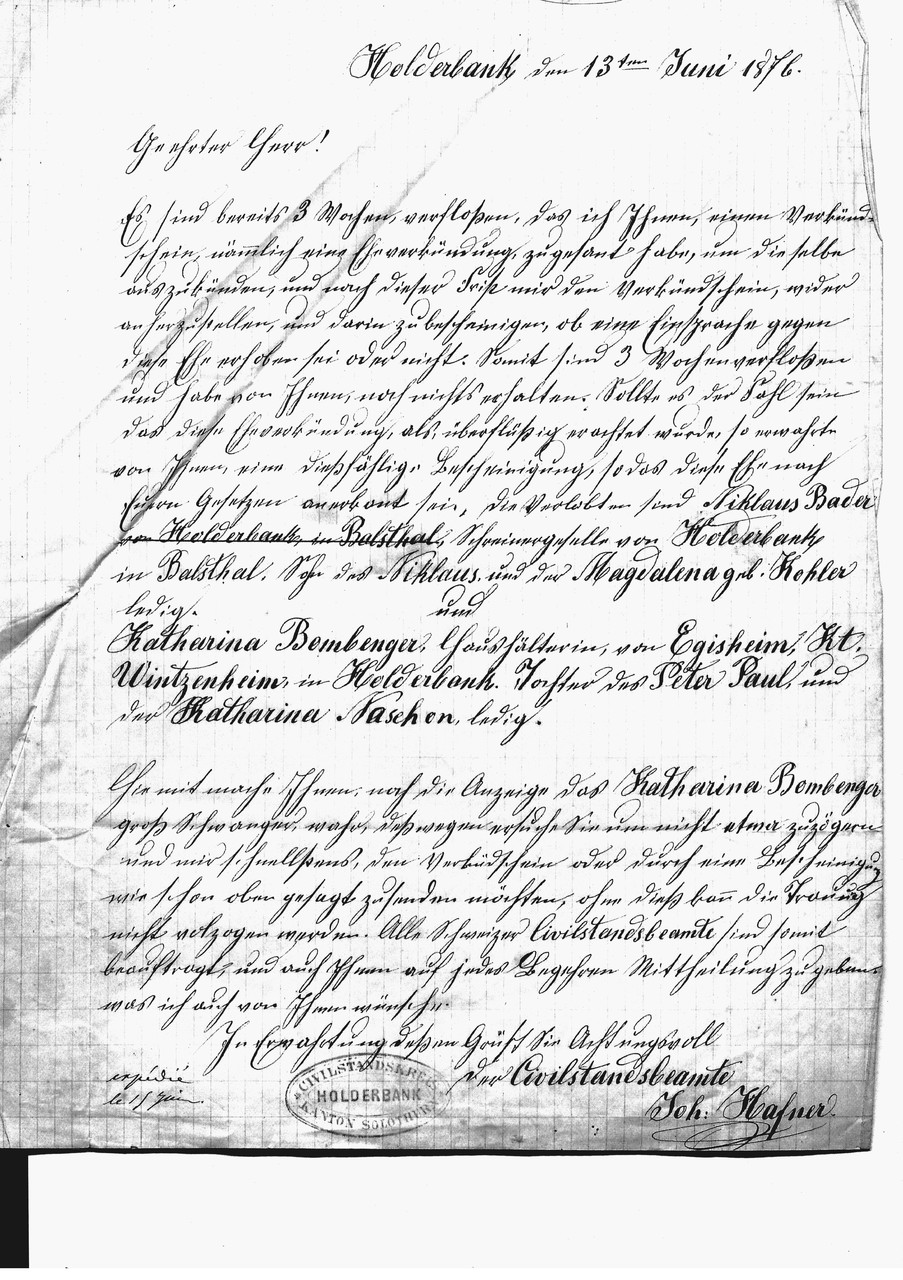 Holderbank, den 13ten Juni 1876.
Geehrter Herr!
Es sind bereits 3 Wochen, verfloßen, das ich Ihnen, einen Verkünd-
schein, nämmlich eine Eheverkündung, zugesant habe, um dieselbe
auszukünden, und nach dieser Frist mir den Verkündschein, wider
anherzustellen, und darin zubescheinigen, ob eine Einsprache gegen
diese Ehe erhoben sei oder nicht. Somit sind 3 Wochen verfloßen
und habe von Ihnen, noch nichts erhalten. Sollte es der Fahl sein
das diese Eheverkündung, als, überflüßig erachtet wurde, so erwahrte
von Ihnen, eine dießfählige Bescheinigung, so das diese Ehe nach
Euern Gesetzen anerkant sei, die Verlobten sind Niklaus Bader
von Holderbank, in Balsthal, Schreinergeselle von Holderbank
in Balsthal. Sohn des Niklaus, und der Magdalena geb. Kohler
ledig.
und
Katharina Bombenger, Haushälterin, von Egisheim, Kt.
Wintzenheim, in Holderbank. Tochter des Peter Paul, und
der Katharina Naschon, ledig.
Hiemit mache Ihnen, noch die Anzeige das Katharina Bombenger
groß Schwanger, wahr, deßwegen ersuche Sie um nicht etwa zuzögern
und mir schnellstens, den Verküdschein oder durch eine Bescheinigung
wie schon oben gesagt zusenden möchten, ohne dieß kan die Trauung
nicht volzogen werden. Alle Schweizer Civilstandsbeamte sind somit
beauftragt, und auch Ihnen auf jedes Begehren Mittheilung zu geben,
was ich auch von Ihnen wünsche.
In Erwahrtung deßen Grüßt Sie Achtungsvoll
der Civilstandsbeamte
Joh: Hafner.
expédié
le 15 Juin
CIVILSTANDSKREIS
HOLDERBANK
KANTON SOLOTHURN